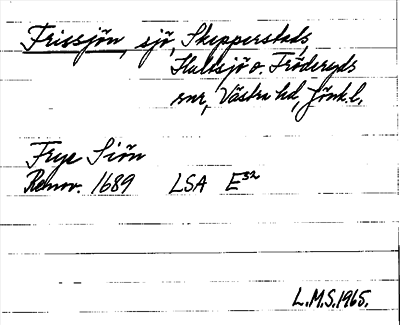 Frissjön, sjö, Skepperstads,
Hultsjö o. Fröderyds
snr, Västra hd, Jönk.l.
Frys Siön
Renov. 1689 LSA E³²
L.M.S. 1965.